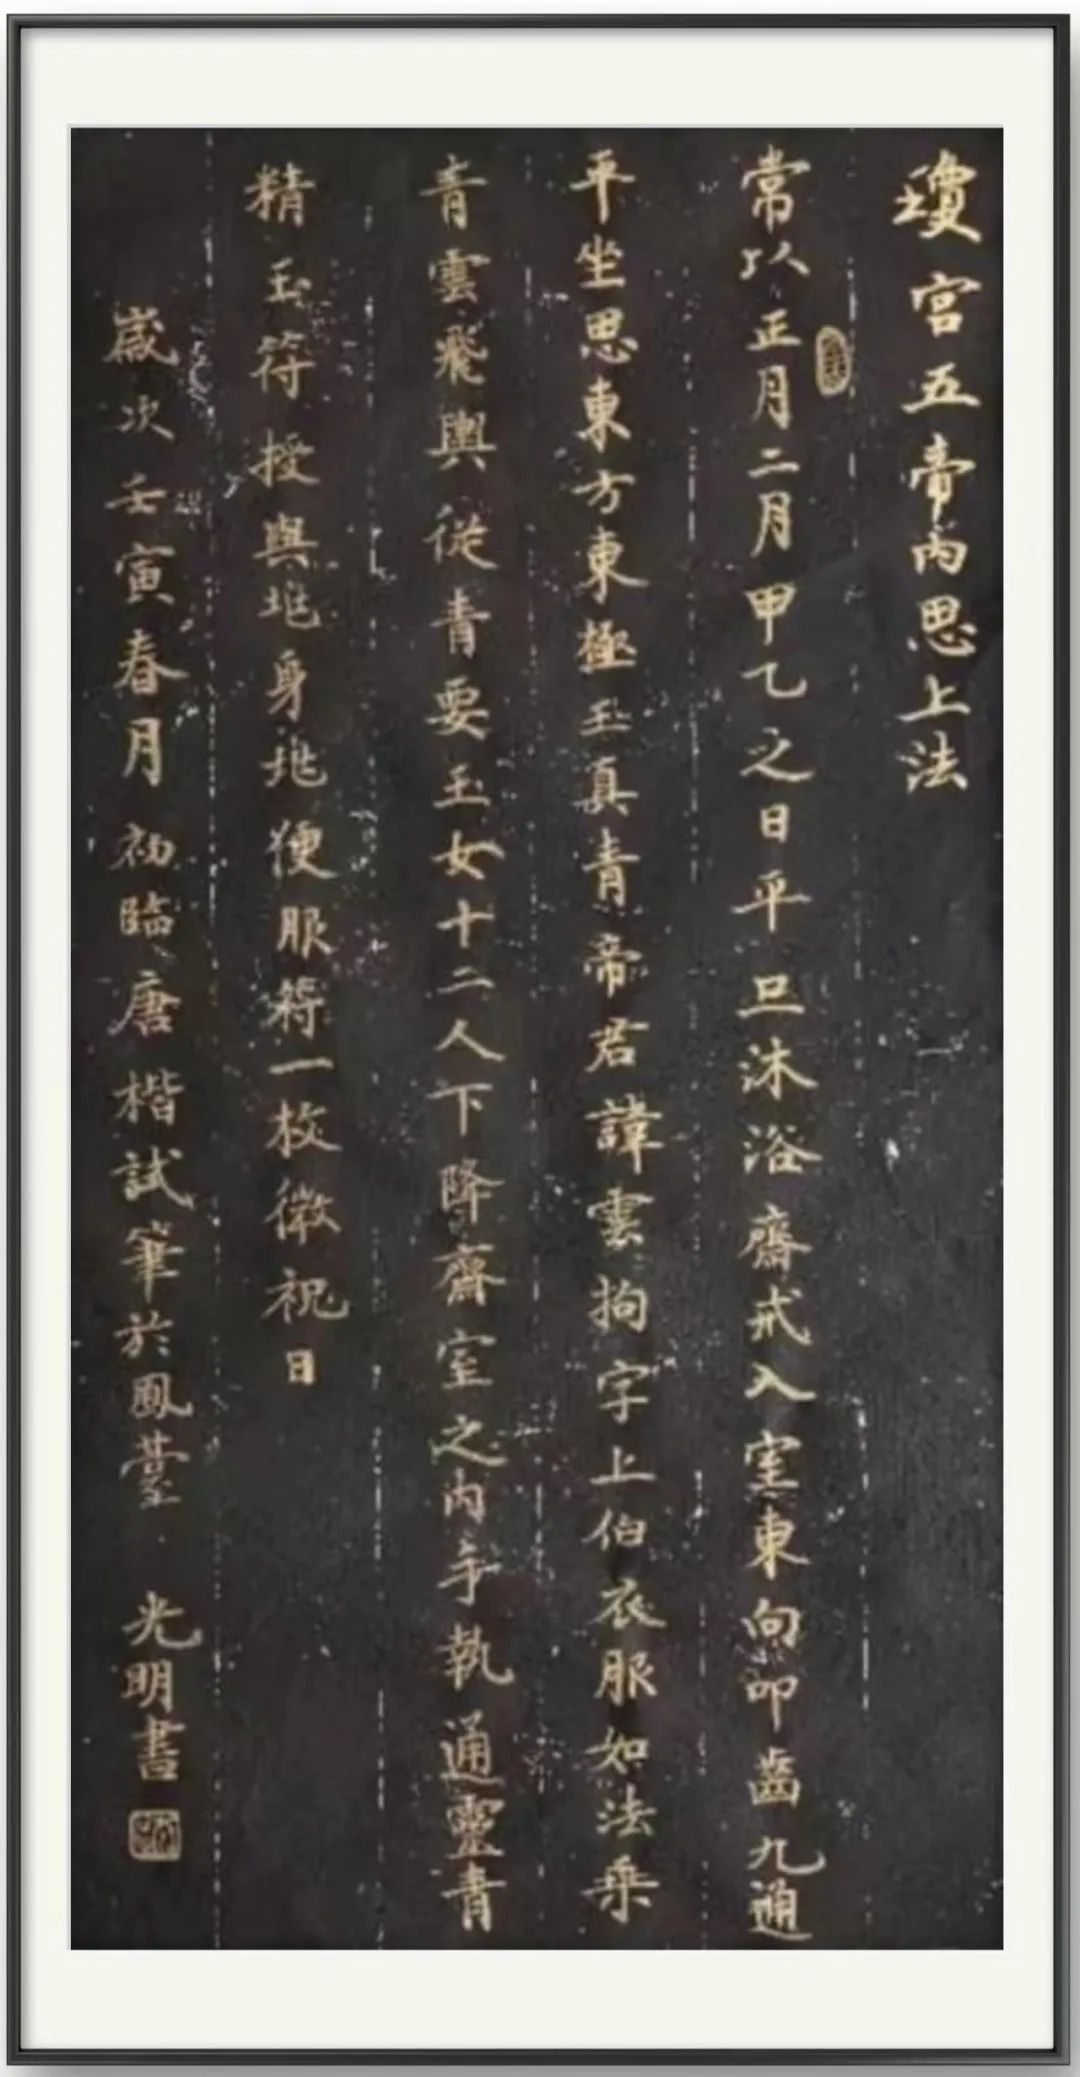 瓊宮五帝內思上法
常以正月二月甲乙之日平旦沐浴齋戒入室東向叩齒九通
平坐思東方東極玉真青帝君諱雲拘字上伯衣服如法乘
青雲飛輿從青要玉女十二人下降齋室之內手執通靈青
精玉符授與兆身兆便服符一枚微祝曰
歲次壬寅春月初臨唐楷試筆於鳳臺 光明書